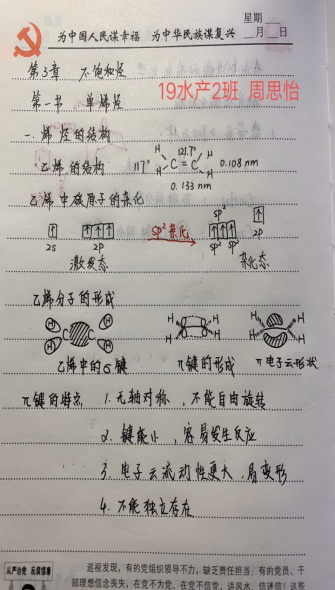 星期
为中国人民谋幸福 为中华民族谋复兴 月 日
第3章 不饱和烃
19水产2班 周思怡
第一节 单烯烃
一.烯烃的结构
乙烯的结构 117° H H C=C H H 121.7° 0.108 nm
0.133 nm
乙烯中碳原子的杂化
↑ ↑↑↑ sp²杂化 sp² ↑↑↑ ↑
2s 2p sp² sp² 2p
激发态 杂化态
乙烯分子的形成
H H C C H H H H H H H H H H
乙烯中的σ键 π键的形成 π电子云形状
π键的特点 1.无轴对称,不能自由旋转
2.键能小,容易发生反应
3.电子云流动性更大,易变形
4.不能独立存在
从严治党 反腐倡廉
巡视发现,有的党组织领导不力,缺乏责任担当,有的党员、干
部理想信念丧失,在党不为党、在党不信党,讲风水、信迷信!这些